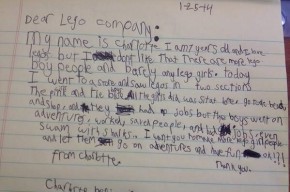 1-25-14
Dear Lego company:
My name is Charlotte. I am 7 years old and I love
legos but I don't like that There are more lego
boy people and barely any lego girls. today
I went to a store and saw legos in two sections
The pink and the blue. All the girls did was sit at home, go to the beach,
and shop, and they had no jobs but the boys went on
adventures, worked, saved people, and had jobs, even
swam with sharks. I want you to make more lego girl people
and let them go on adventures and have fun ok!?!
from Charlotte. Thank you.